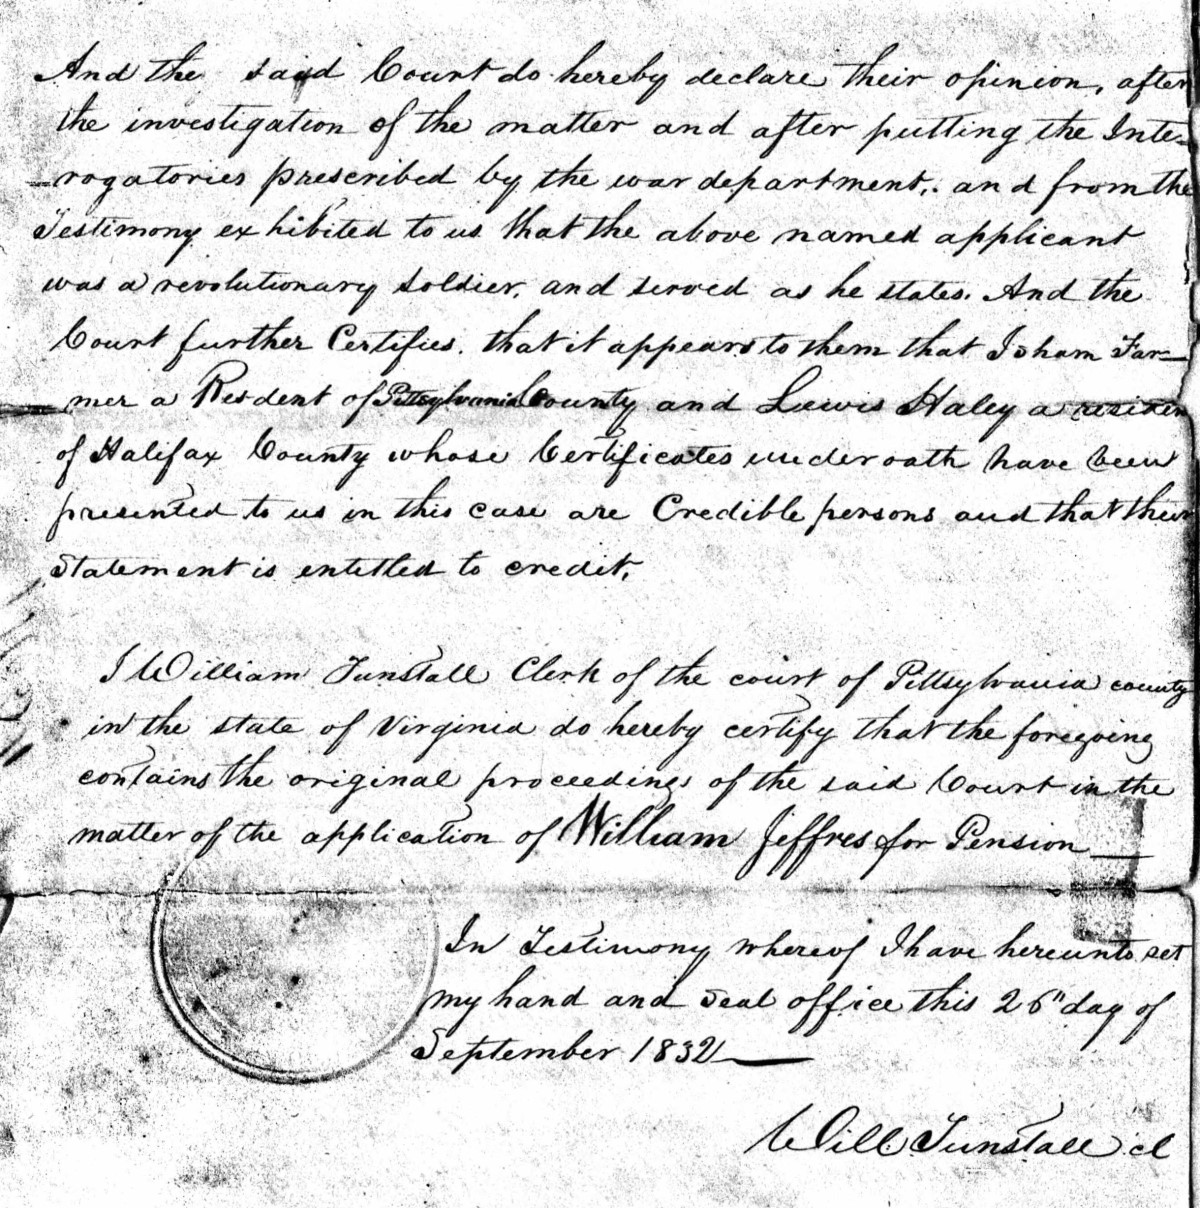 And the said Court do hereby declare their opinion, after
the investigation of the matter and after putting the Inte-
-rogatories prescribed by the war department,. and from the
Testimony exhibited to us that the above named applicant
was a revolutionary soldier, and served as he states. And the
Court further Certifies. that it appears to them that Isham Far-
-mer a Resdent of Pittsylvania County and Lewis Haley a residen
of Halifax County whose Certificates under oath have been
presented to us in this case are Credible persons and that their
Statement is entitled to credit.
I William Tunstall Clerk of the court of Pittsylvania county
in the state of Virginia do hereby certify that the foregoing
contains the original proceedings of the said Court in the
matter of the application of William Jeffres for Pension
In Testimony whereof I have hereunto set
my hand and seal office this 26" day of
September 1832
Will Tunstall cl